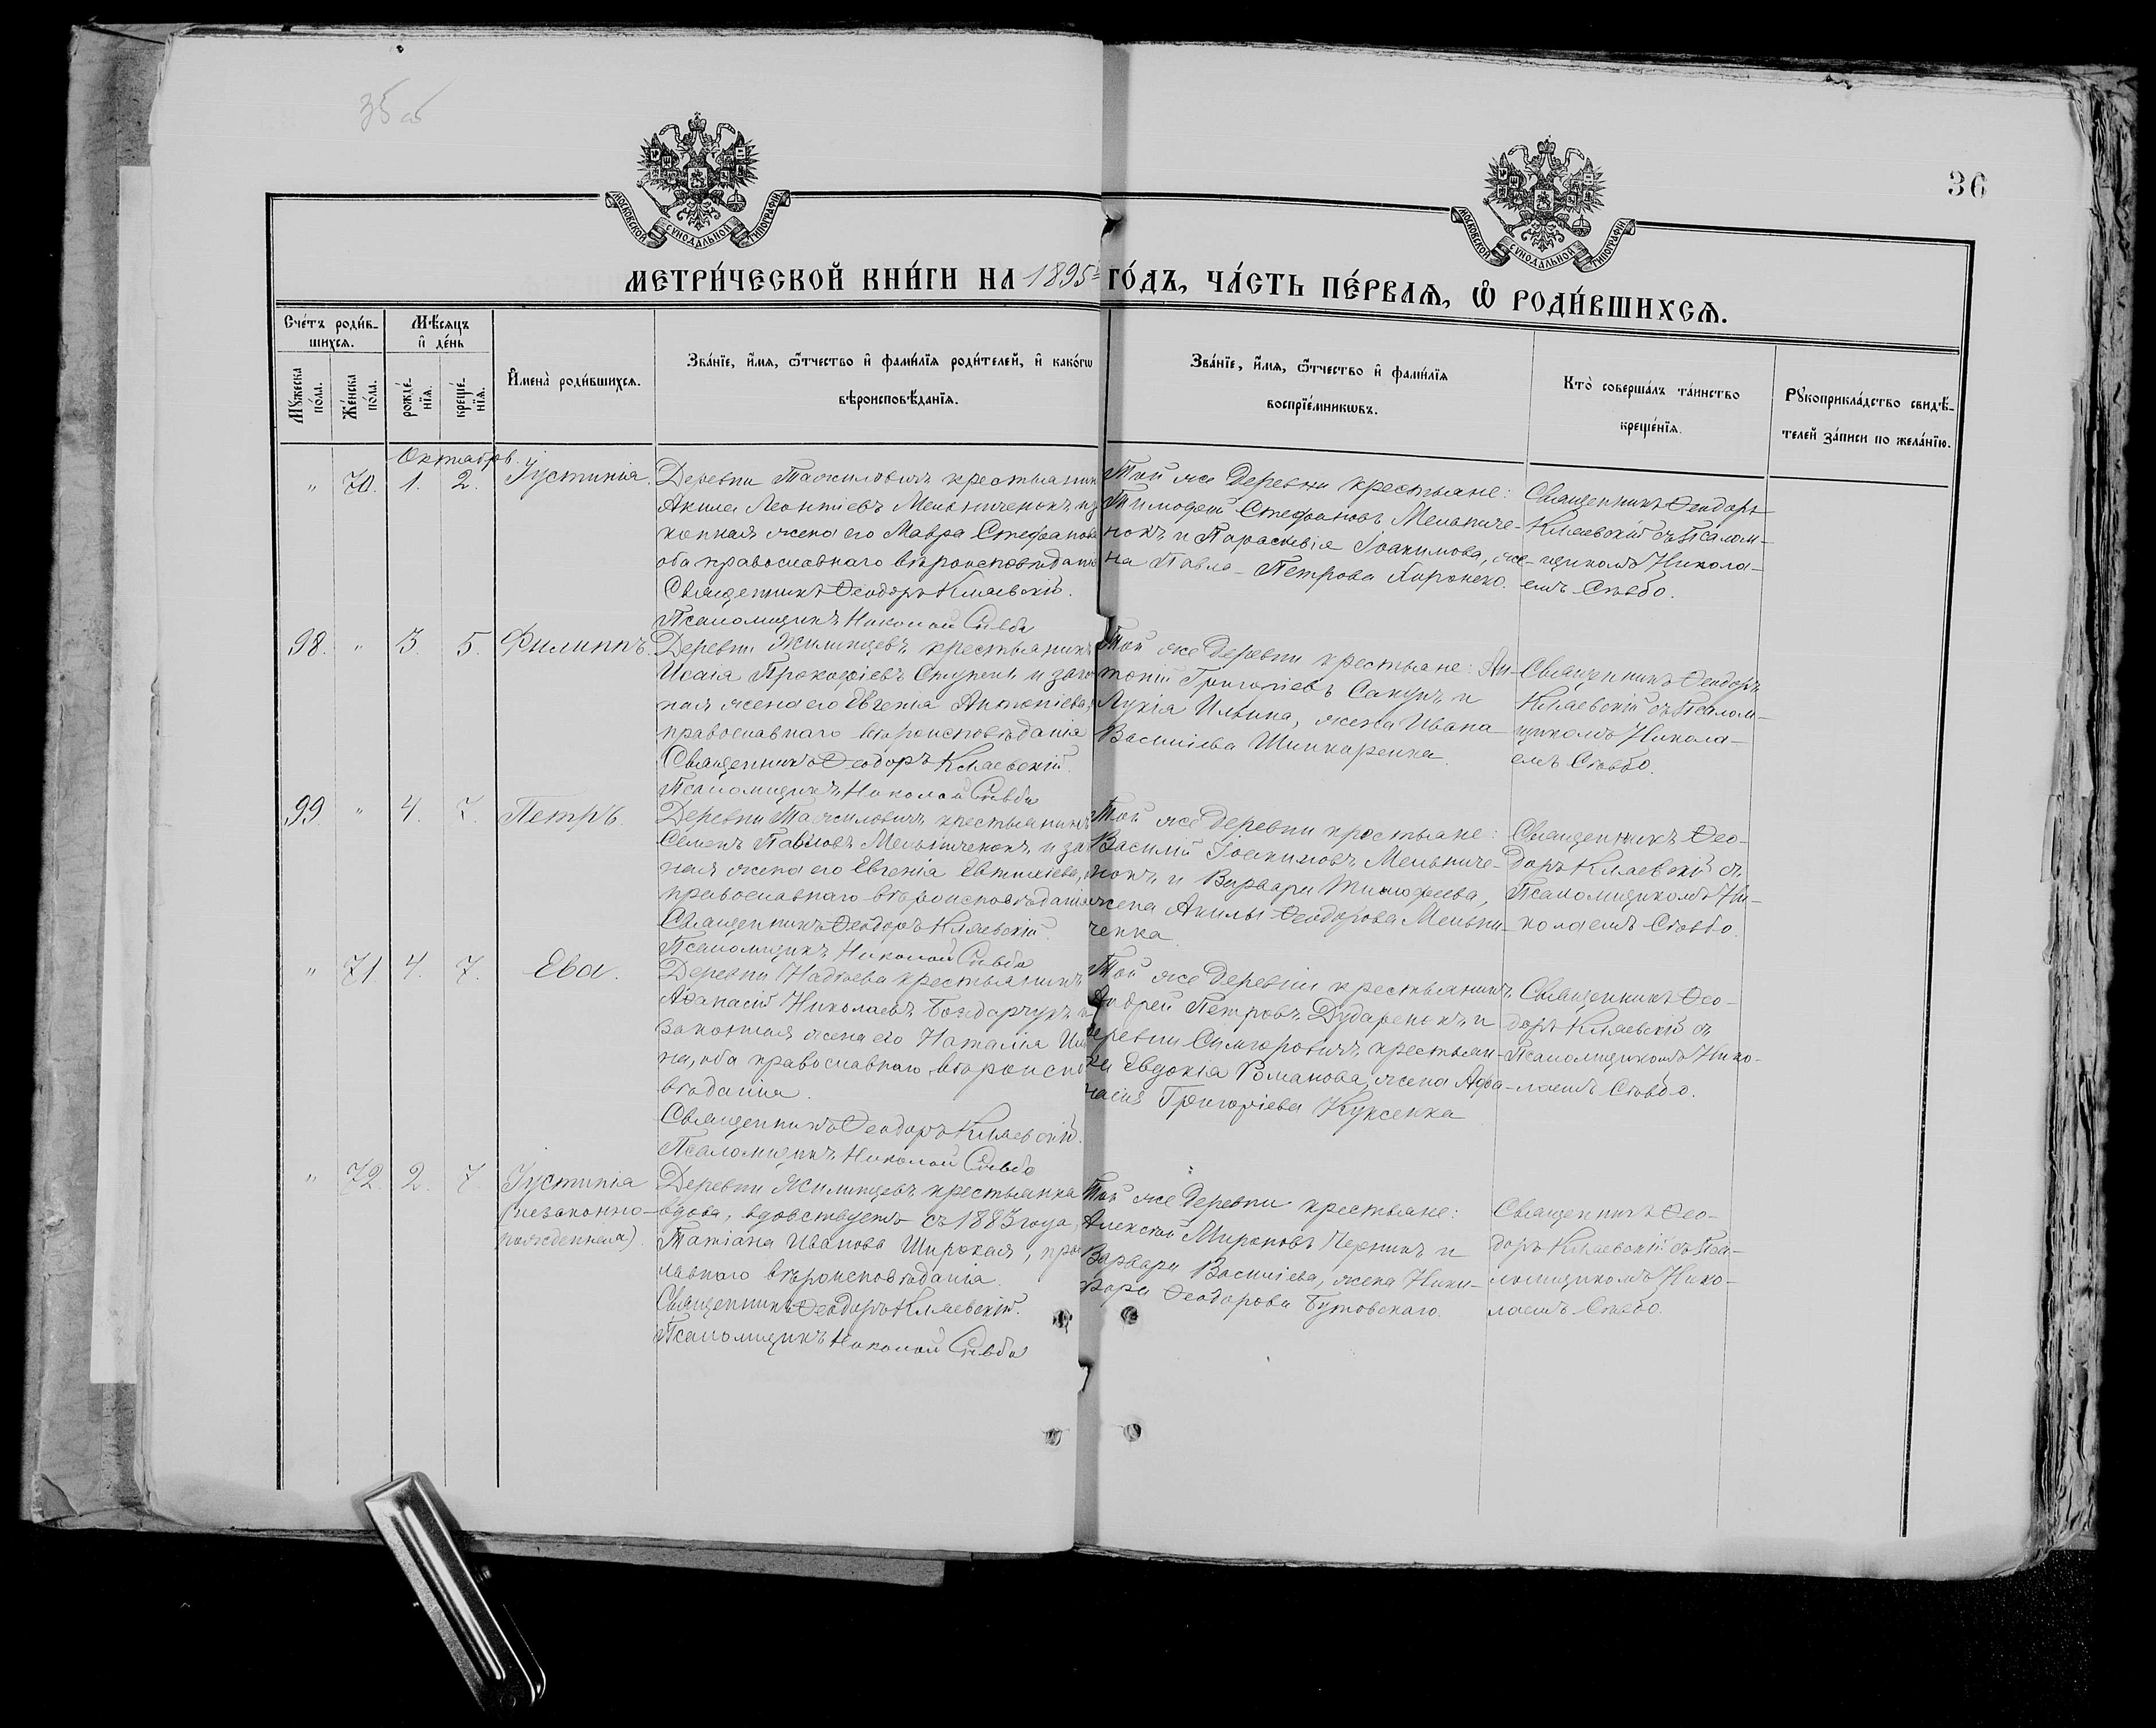 35 об
36
МОСКОВСКОЙ СѴНОДАЛЬНОЙ ТИПОГРАФІИ
МОСКОВСКОЙ СѴНОДАЛЬНОЙ ТИПОГРАФІИ
МЕТРИ́ЧЕСКОЙ КНИ́ГИ НА 1895й ГО́ДЪ, ЧА́СТЬ ПЕ́РВАЯ, Ѽ РОДИ́ВШИХСЯ.
Сче́тъ роди́в-
шихся.
Мꙋ́жеска
по́ла.
Же́нска
по́ла.
Мѣ́сяцъ
и҆ де́нь
рожде́-
нїя.
креще́-
нїя.
И҆мена̀ роди́вшихся.
Зва́нїе, и҆́мя, ѻ҆́тчество и҆ фами́лїя роди́телей, и҆ како́гѡ
вѣроисповѣ́данїя.
Зва́нїе, и҆́мя, ѻ҆́тчество и҆ фами́лїя
воспрїе́мникѡвъ.
Кто̀ соверша́лъ та́инство
креще́нїя.
Рꙋкоприкла́дство свидѣ́-
телей за́писи по жела́нїю.
Октябрь.
" 70. 1. 2. Іустинія.
Деревни крестьянинъ
Акила Леонтіевъ Мельниченокъ и за
конная жена его Мавра Стефанова
оба православнаго вѣроисповѣданія
Священникъ Ѳеодоръ Кляевскій.
Псаломщикъ Николай Сѣвбо
Той же деревни крестьяне:
Тимоѳей Стефановъ Мельниче-
нокъ и Параскевія Іоакимова, же-
на Павла Петрова
Священникъ Ѳеодоръ
Кляевскій съ Псалом-
щикомъ Никола-
емъ Сѣвбо.
98. " 3. 5. Филиппъ.
Деревни Жилинцевъ крестьянинъ
Исаія Прокофіевъ Ступень и зако
ная жена его Евгенія Антоніева,
православнаго вѣроисповѣданія
Священникъ Ѳеодоръ Кляевскій.
Псаломщикъ Николай Сѣвбо
Той же деревни крестьяне: Ан-
тоній Григоріевъ Сакунъ и
Лукія Ильина, жена Ивана
Василіева Шинкаренка.
Священникъ Ѳеодоръ
Кляевскій съ Псалом-
щикомъ Никола-
емъ Сѣвбо.
99. " 4. 7. Петръ.
Деревни крестьянинъ
Семенъ Павловъ Мельниченокъ и за
ная жена его Евгенія Евтихіева,
православнаго вѣроисповѣданія
Священникъ Ѳеодоръ Кляевскій.
Псаломщикъ Николай Сѣвбо
Той же деревни крестьяне:
Василій Іоакимовъ Мельниче-
нокъ и Варвара Тимоѳеева,
жена Акилы Ѳеодорова Мельни-
ченка.
Священникъ Ѳео-
доръ Кляевскій съ
Псаломщикомъ Ни-
колаемъ Сѣвбо.
" 71 4. 7. Ева.
Деревни крестьянинъ
Аѳанасій Николаевъ Бондарчукъ и
законная жена его Наталія Иль
на, оба православнаго вѣроиспо
вѣданія.
Священникъ Ѳеодоръ Кляевскій.
Псаломщикъ Николай Сѣвбо
Той же деревни крестьянинъ
Андрей Петровъ Дударенокъ и
деревни крестьян-
ка Евдокія Романова, жена Аѳа-
насія Григоріева Куксенка
Священникъ Ѳео-
доръ Кляевскій съ
Псаломщикомъ Нико-
лаемъ Сѣвбо.
" 72. 2. 7. Іустинія
(незаконно-
рожденная).
Деревни Жилинцевъ крестьянка
вдова, вдовствуетъ съ 1883 года,
Татіана Иванова Широкая, прав
лавнаго вѣроисповѣданія.
Священникъ Ѳеодоръ Кляевскій.
Псаломщикъ Николай Сѣвбо
Той же деревни крестьяне:
Алексѣй Мироновъ и
Варвара Василіева, жена Ники-
фора Ѳеодорова Бутовскаго.
Священникъ Ѳео-
доръ Кляевскій съ Пса-
ломщикомъ Нико-
лаемъ Сѣвбо.